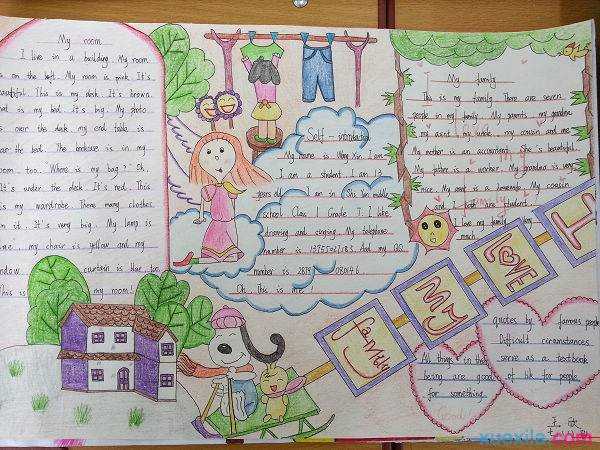 My room
I live in a building. My room
is on the left. My room is pink. It's
beautiful. This is my desk. It's brown.
that is my bed. it's big. My photo
is over the desk. my end table is
near the bed. The bookcase is in my
room too. "Where is my bag?" Oh,
It's under the desk. It's red. This
is my wardrobe. There many clothes
in it. It's very big. My lamp is
my chair is yellow and my
window curtain is blue, too.
This is my room!
Self-introduction
My name is Wang Xin. I am
I am a student. I am 12
years old. I am in Shi middle
school Class 1 Grade 7. I like
drawing and singing. My telephone
number is And my QQ
number is
Oh. This is me!
My family
This is my family. There are seven
people in my family. My parents, my grandma
my aunt, my uncle, my cousin and me
My mother is an accountant. She is beautiful.
My father is a worker. My grandma is very
nice. My aunt is a My cousin
and I both student.
I love my family very
much.
I
LOVE
My
family
quotes by famous people
Difficult circumstances
serve as a textbook
of life for people
All things in their
being are good
for something.
王欣
xuexila.com